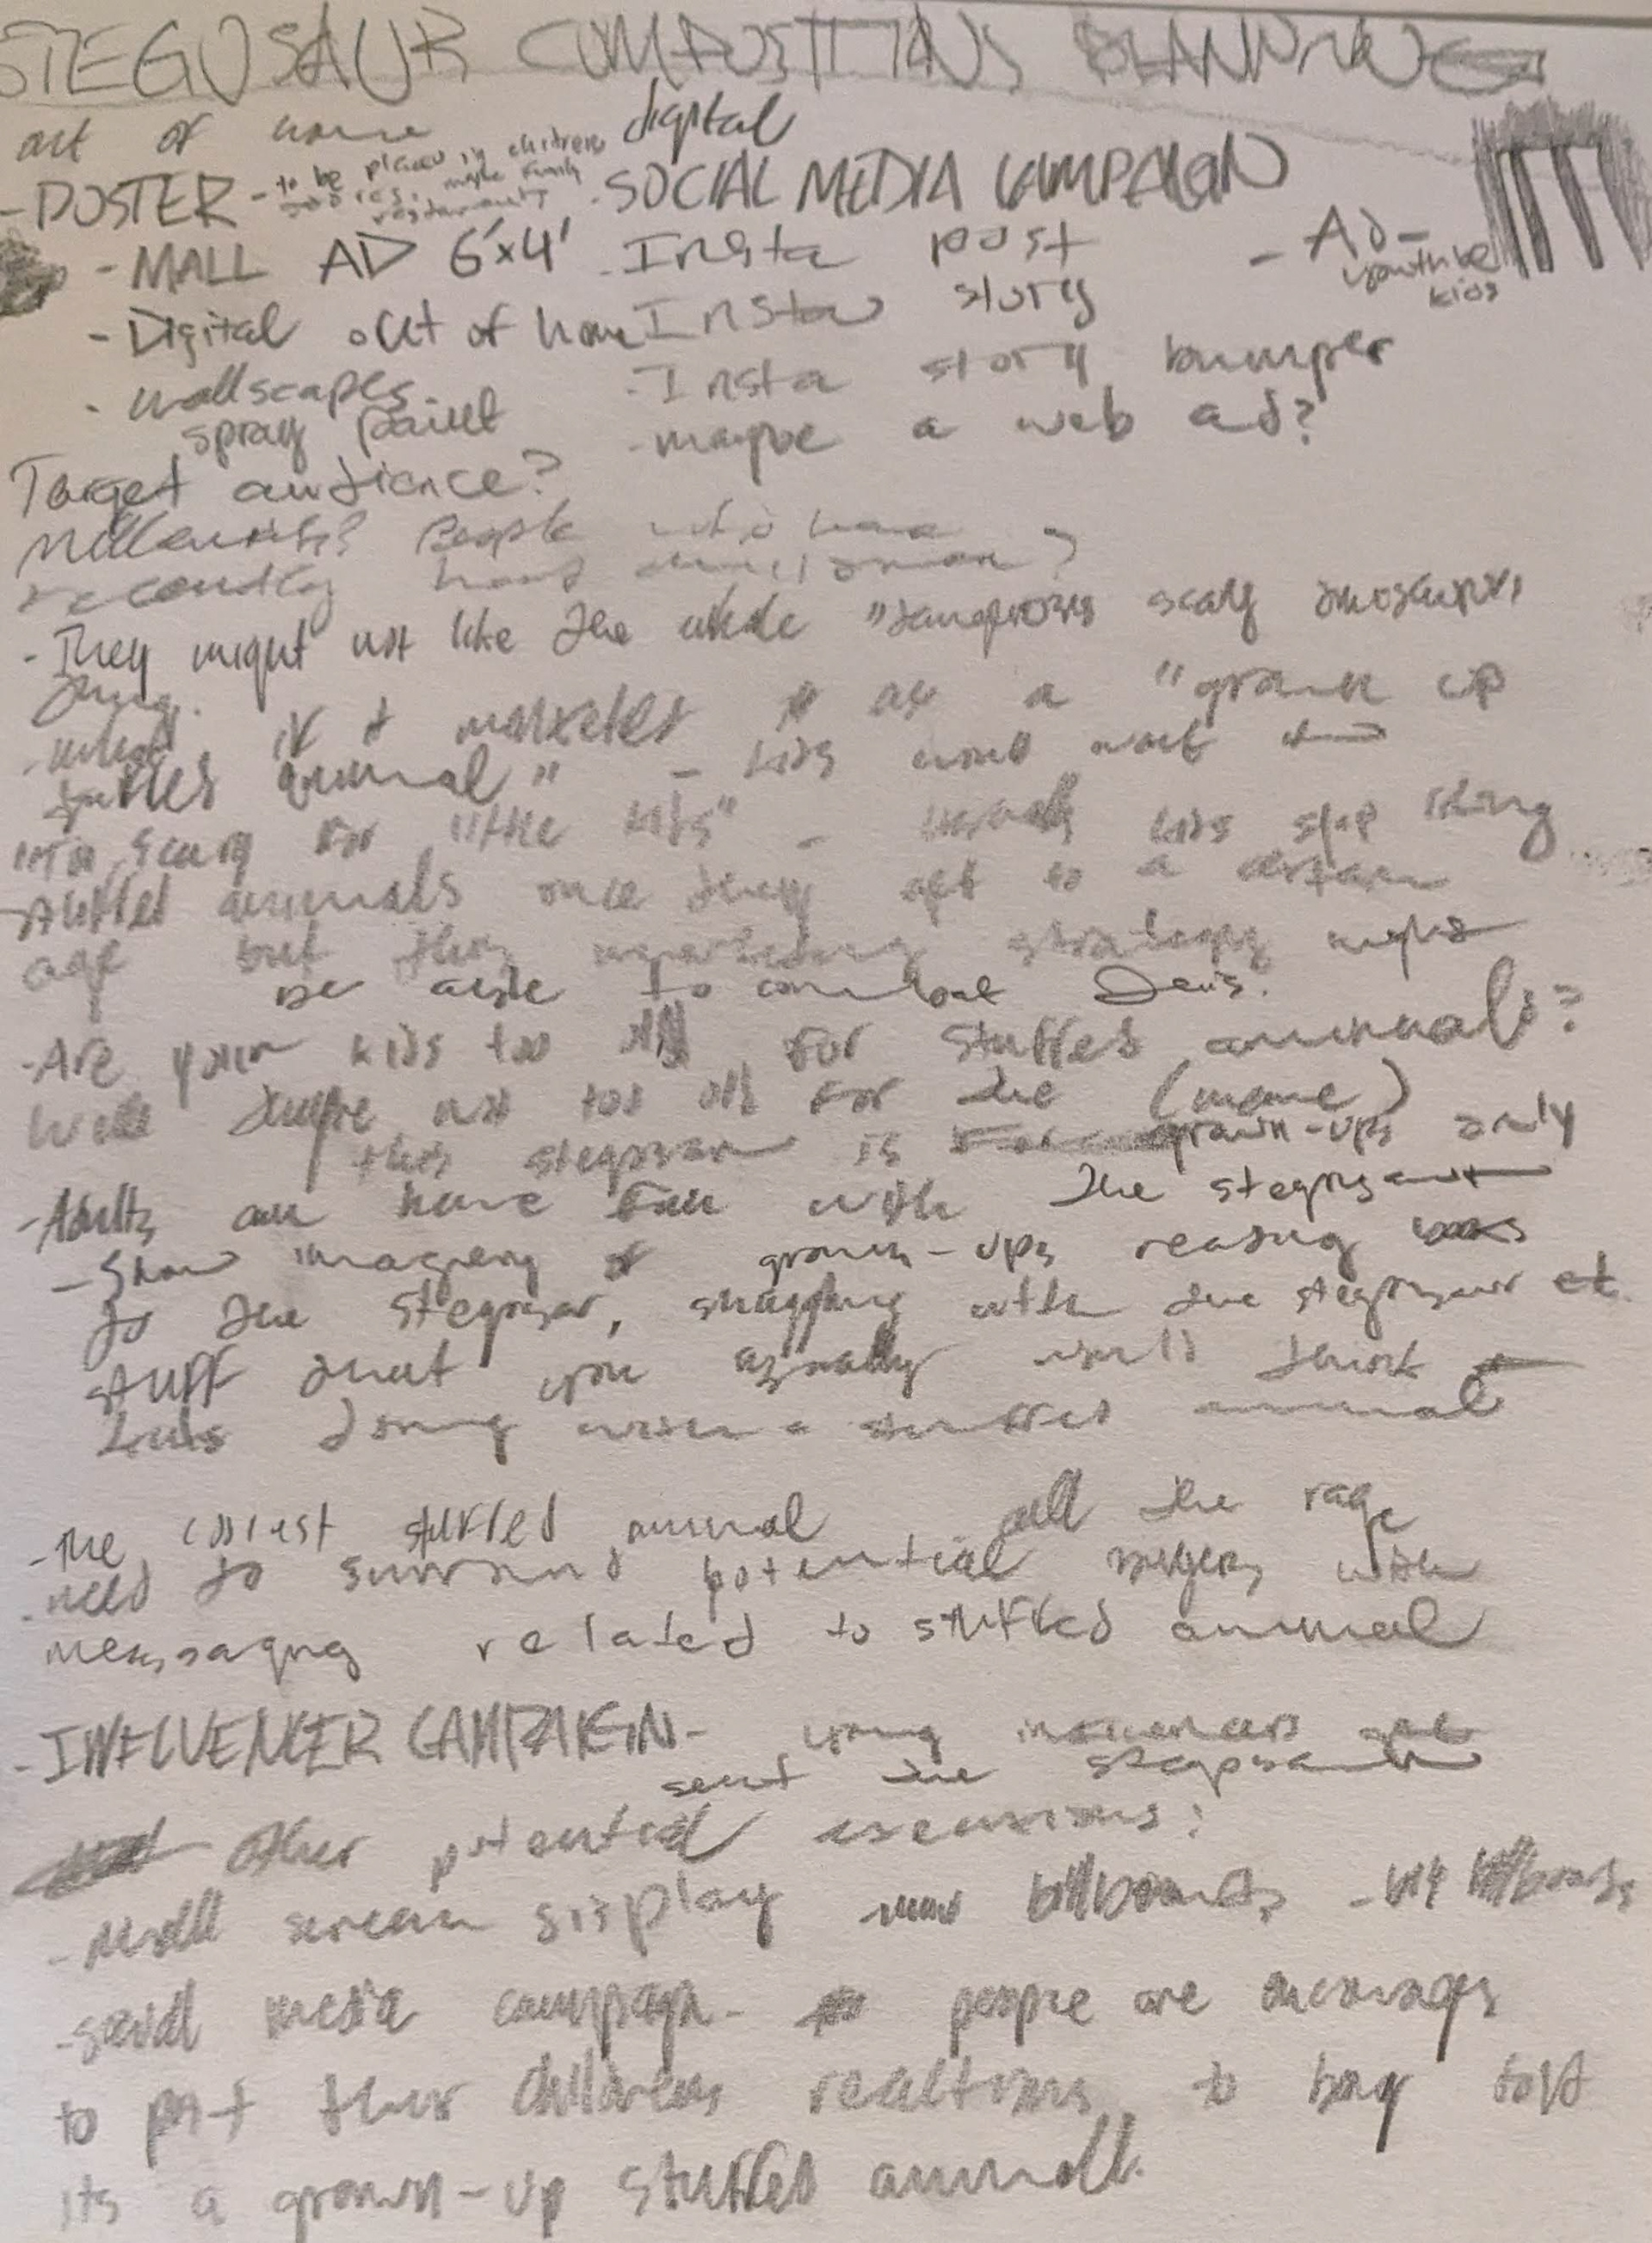 STEGOSAUR COMPOSITIONS PLANNING
out of home
digital
- POSTER - to be placed in childrens
maybe family
restaurants
- MALL AD 6'x4'
- Digital out of home
- wallscapes
spray paint
- SOCIAL MEDIA CAMPAIGN
- Insta post
Insta story
- Insta story bumper
- maybe a web ad?
- AD -
youtube
kids
Target audience?
Millennials? People who have
recently had children?
- They might not like the whole "dangerous scary
thing.
- what if I marketed it as a "grown up
stuffed animal" - kids would want
scary for little kids" - usually kids stop liking
stuffed animals once they get to a certain
age but this marketing strategy might
be able to combat
- Are your kids too old for stuffed animals?
Well they're not too old for the (name)
this stegosaur is grown-ups only
- Adults can have fun with the stegosaur
- Show imagery of grown-ups reading books
to the stegosaur, snuggling with the stegosaur etc.
stuff that you usually would think of
kids doing with a stuffed animal
- The coolest stuffed animal all the rage
- need to surround potential buyers with
messaging related to stuffed animal
- INFLUENCER CAMPAIGN - young influencers get
sent the stegosaur
Other potential extensions:
- Mall screen display billboards
- social media campaign - people are
to post their childrens reactions to being told
its a grown-up stuffed animal.